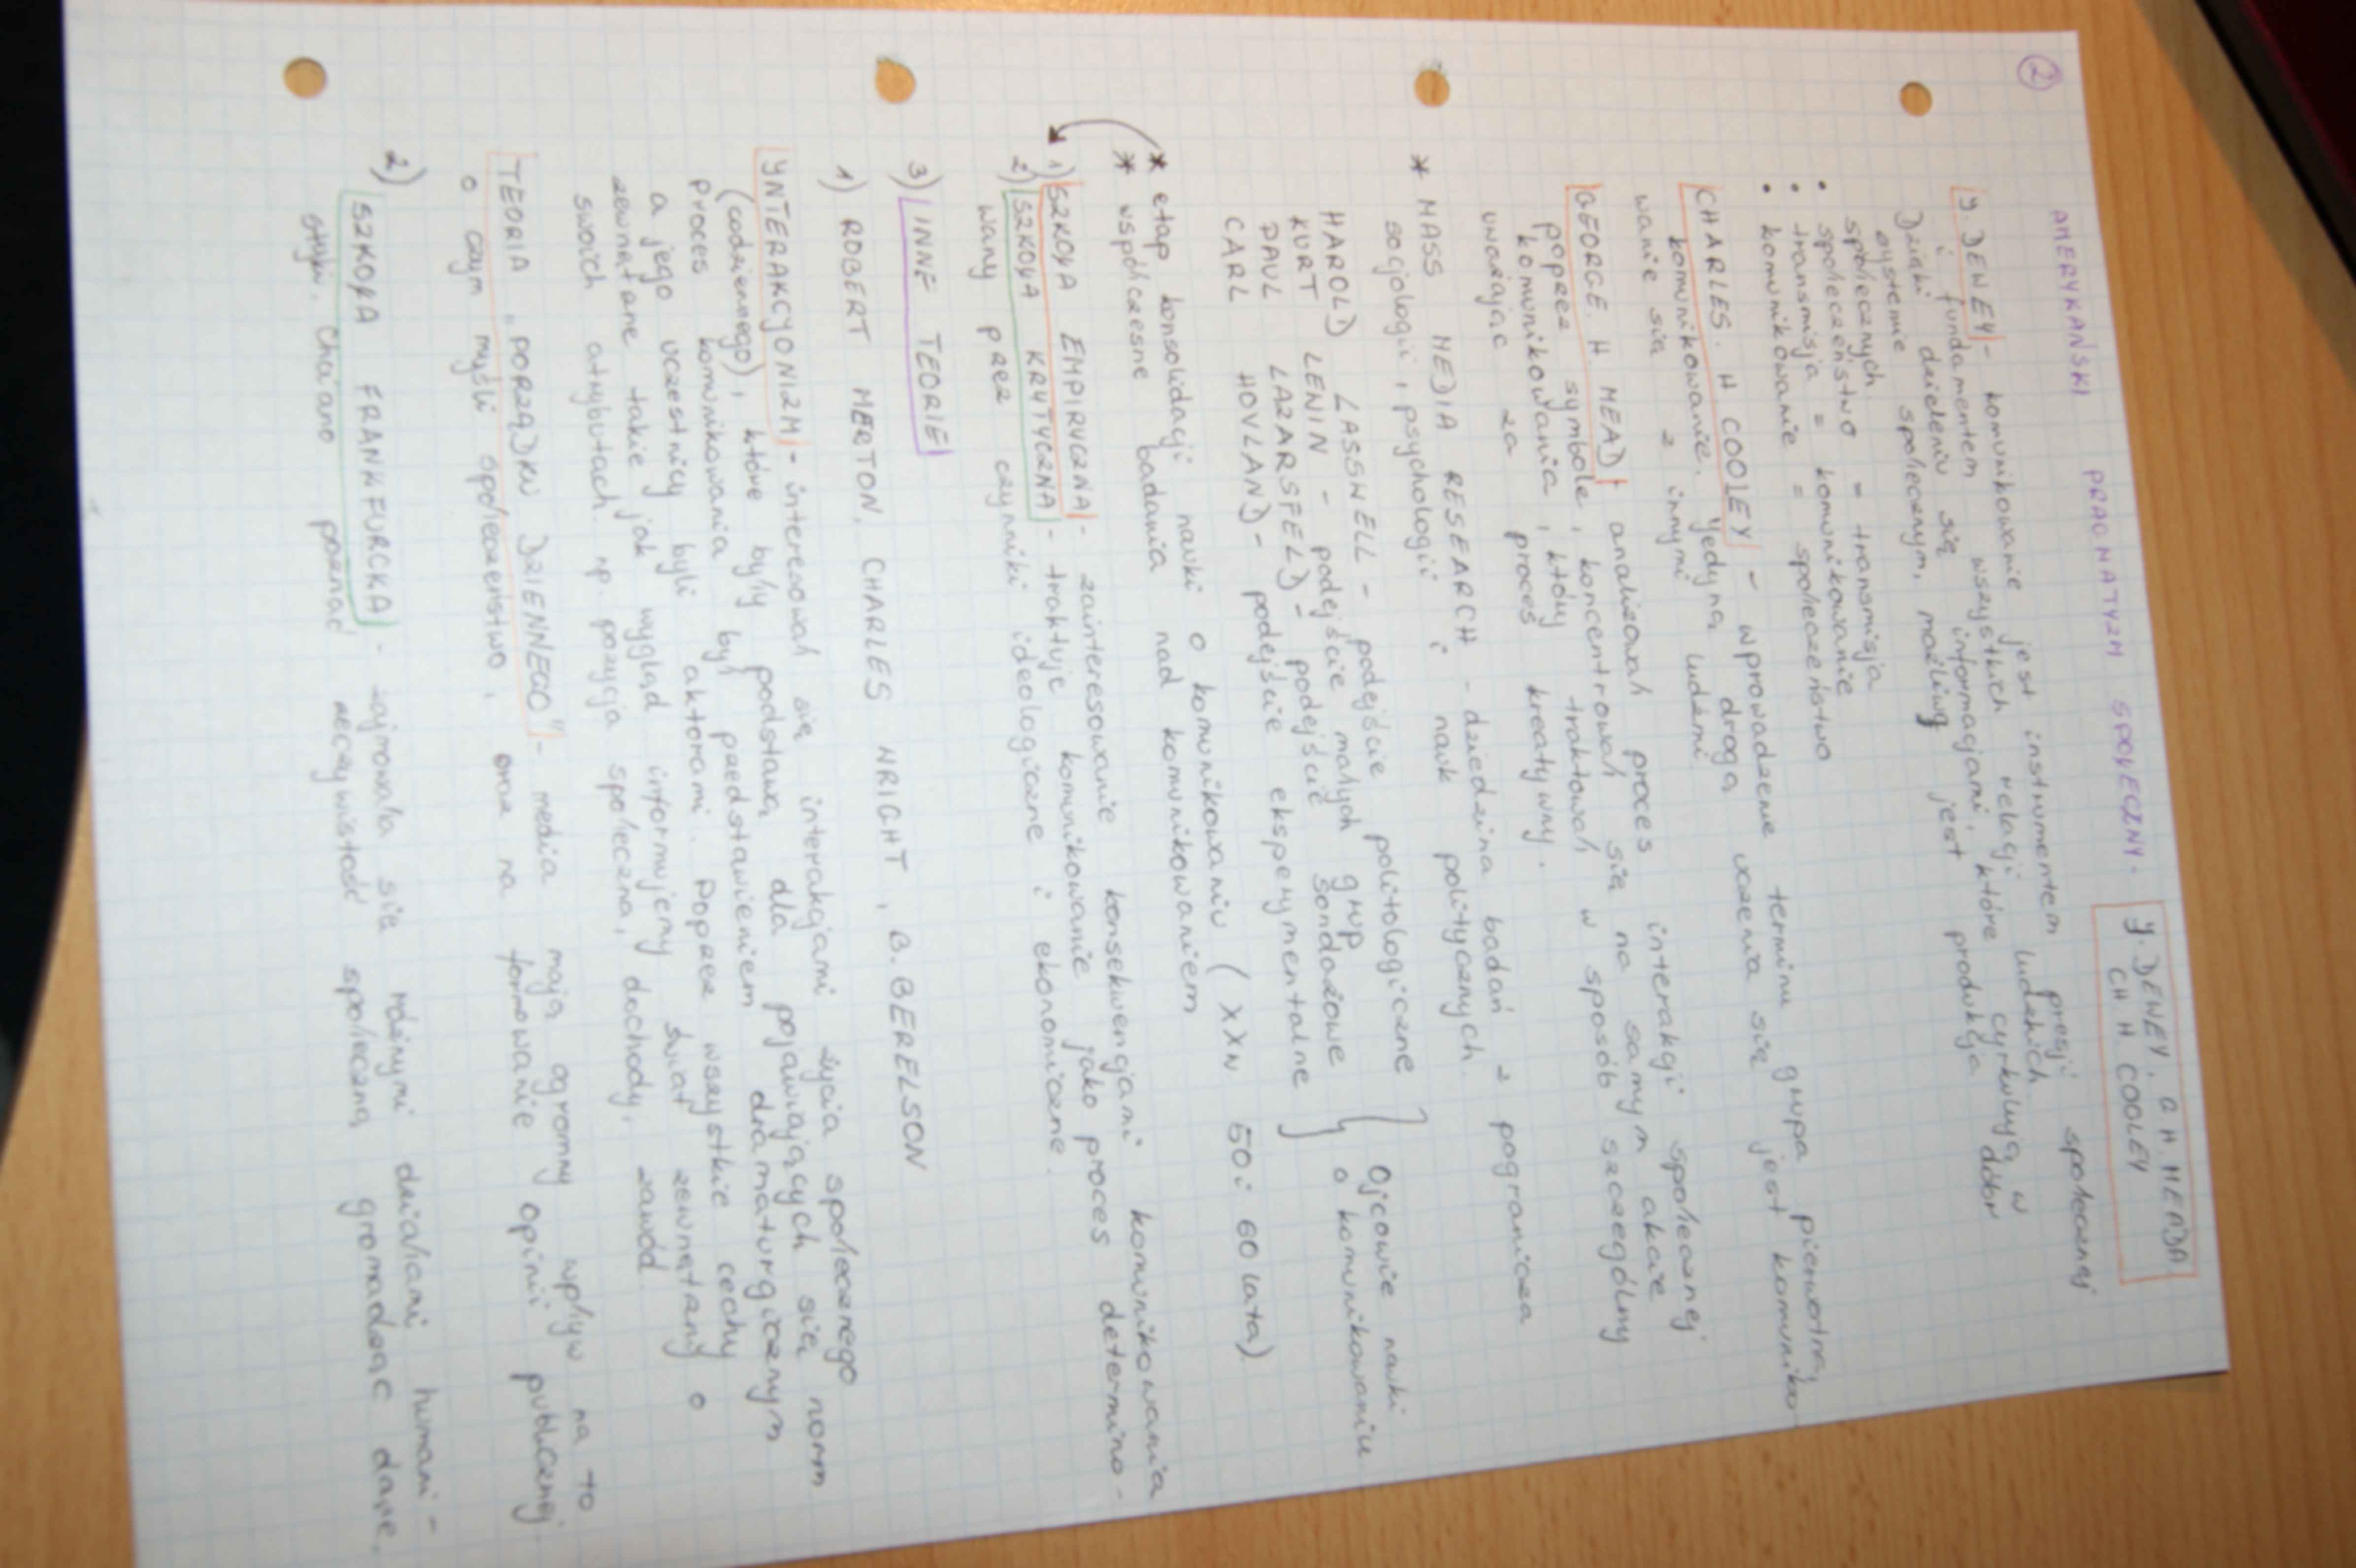 ②
AMERYKAŃSKI PRAGMATYZM SPOŁECZNY. Y. DEWEY, G H MEADA
CH H COOLEY
Y DEWEY - komunikowanie jest instrumentem presji społecznej
i fundamentem wszystkich relacji ludzkich
Dzięki dzieleniu się informacjami, które cyrkulują w
systemie społecznym, możliwy jest produkcja dóbr
społecznych.
• społeczeństwo = transmisja
• transmisja = komunikowanie
• komunikowanie = społeczeństwo
CHARLES. H COOLEY - wprowadzenie terminu grupa pierwotna,
komunikowanie. Jedyną drogą uczenia się jest komuniko-
wanie się z innymi ludźmi
GEORGE. H MEAD - analizował proces interakcji społecznej
poprzez symbole, koncentrował się na samym akcie
komunikowania, który traktował w sposób szczególny
uważając za proces kreatywny.
* MASS MEDIA RESEARCH - dziedzina badań z pogranicza
socjologii, psychologii i nauk politycznych.
HAROLD LASSWELL - podejście politologiczne
KURT LENIN - podejście małych grup
PAUL LAZARSFELD - podejście sondażowe
CARL HOVLAND - podejście eksperymentalne
} Ojcowie nauki
o komunikowaniu
* etap konsolidacji nauki o komunikowaniu (XXw. 50 i 60 lata)
* współczesne badania nad komunikowaniem
1) SZKOŁA EMPIRYCZNA - zainteresowanie konsekwencjami komunikowania
2) SZKOŁA KRYTYCZNA - traktuje komunikowanie jako proces determino-
wany przez czynniki ideologiczne i ekonomiczne.
3) INNE TEORIE
1) ROBERT MERTON, CHARLES WRIGHT, B. BERELSON
YNTERAKCYONIZM - interesował się interakcjami życia społecznego
(codziennego), które były podstawą dla pojawiających się norm
proces komunikowania był przedstawieniem dramaturgicznym
a jego uczestnicy byli aktorami. Poprzez wszystkie cechy
zewnętrzne takie jak wygląd informujemy świat zewnętrzny o
swoich atrybutach np. pozycja społeczna, dochody, zawód
TEORIA „PORZĄDKU DZIENNEGO" - media mają ogromny wpływ na to
o czym myśli społeczeństwo, oraz na formowanie opinii publicznej.
2) SZKOŁA FRANKFURCKA - zajmowała się różnymi działami humani-
styki. Chciano poznać rzeczywistość społeczną gromadząc dane,